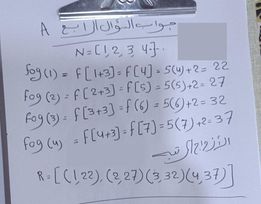 A جواب السؤال الرابع
N=[1,2,3,4]..
fog(1) = f[1+3]=f[4]=5(4)+2=22
fog(2)=f[2+3]=f[5]=5(5)+2=27
fog(3)=f[3+3]=f(6)=5(6)+2=32
fog(4)=f[4+3]=f[7]=5(7)+2=37
الأزواج المرتبه
R=[(1,22),(2,27)(3,32)(4,37)]